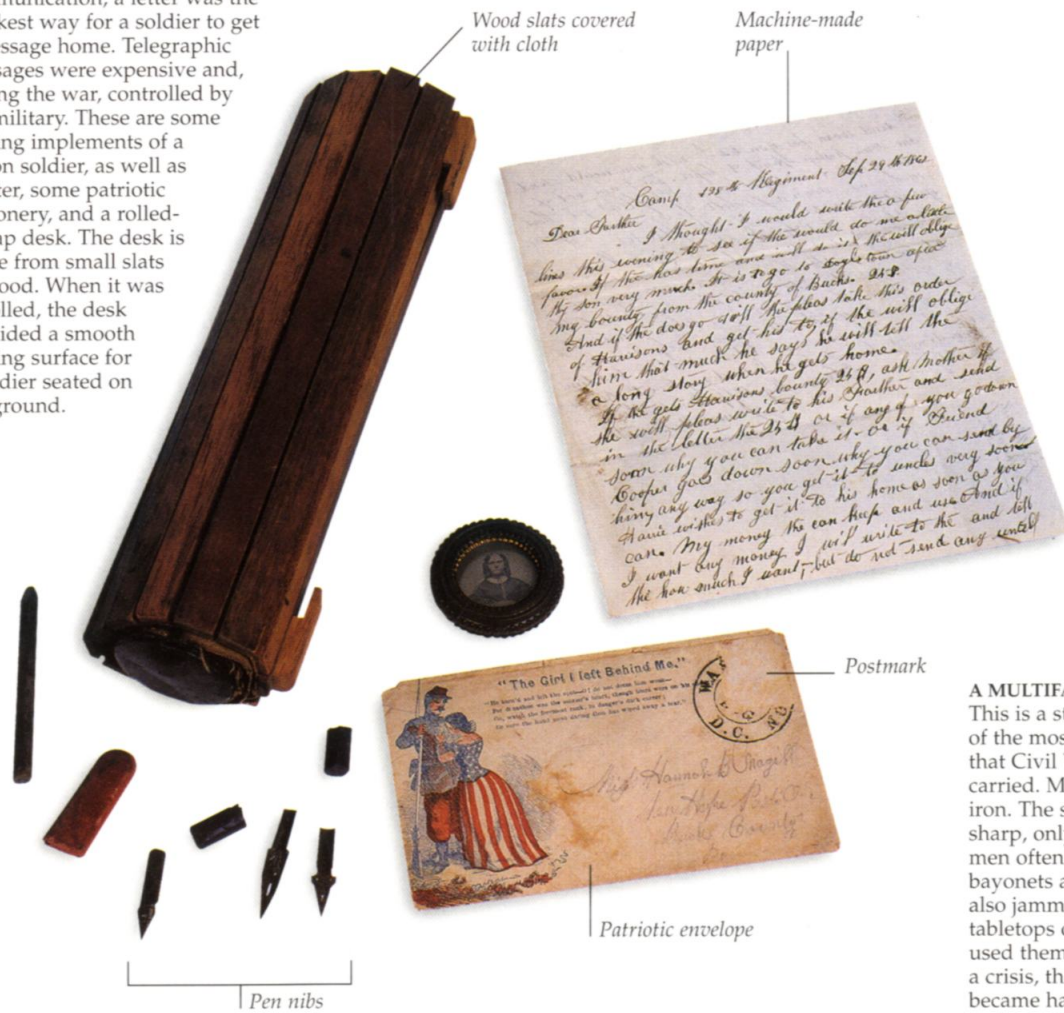 munication, a letter was the
kest way for a soldier to get
ssage home. Telegraphic
sages were expensive and,
ng the war, controlled by
military. These are some
ing implements of a
on soldier, as well as
ter, some patriotic
onery, and a rolled-
p desk. The desk is
e from small slats
ood. When it was
lled, the desk
vided a smooth
ing surface for
dier seated on
ground.
Wood slats covered
with cloth
Machine-made
paper
Camp 128th Regiment Sep 29th
Dear Farther I thought I would write the a few
lines this evening to see if the would do me a little
favor If the has time and will do it the will oblige
thy son very much. It is to go to after
my bounty from the county of Bucks. 25$.
And if the does go will the pleas take this order
of Harrisons and get his to if the will oblige
him that much he says he will tell the
a long story when he gets home.
If the gets Harrisons bounty 25$, ask Mother if
she will pleas write to his Farther and send
in the letter the 25$ or if any of you go down
soon why you can take it. or if Friend
Cooper goes down soon why you can send by
him, any way so you get it to uncles very soon
wishes to get it to his home as soon as you
can. My money the can keep and use And if
I want any money I will write to the and tell
the how much I want, but do not send any until
"The Girl I left Behind Me."
D.C.
Miss Hannah
Bucks County
Postmark
Patriotic envelope
Pen nibs
A MULTIFA
This is a st
of the mos
that Civil
carried. M
iron. The s
sharp, onl
men often
bayonets a
also jamm
tabletops o
used them
a crisis, th
became ha